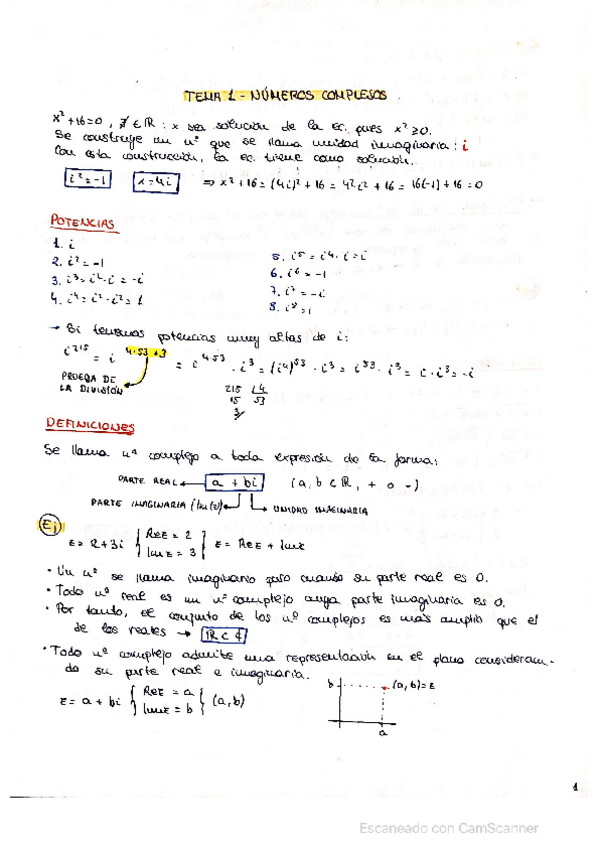 TEMA 1 - NÚMEROS COMPLEJOS
x²+16=0, ∄ x∈ℝ : x sea solución de la ec. pues x²≥0.
Se construye un nº que se llama unidad imaginaria: i
Con esta construcción, la ec. tiene como solución.
i²=-1 x=4i ⇒ x²+16 = (4i)²+16 = 4²i²+16 = 16(-1)+16 = 0
POTENCIAS
1. i
2. i² = -1
3. i³ = i²·i = -i
4. i⁴ = i²·i² = 1
5. i⁵ = i⁴·i = i
6. i⁶ = -1
7. i⁷ = -i
8. i⁸ = 1
→ Si tenemos potencias muy altas de i:
i²¹⁵ = i^(4·53+3) = i^(4·53) · i³ = (i⁴)⁵³ · i³ = i⁵³ · i³ = i · i³ = -i
PRUEBA DE
LA DIVISIÓN
215 | 4
15 53
3/
DEFINICIONES
Se llama nº complejo a toda expresión de la forma:
PARTE REAL ← a + bi (a, b ∈ ℝ, + o -)
PARTE IMAGINARIA (Im(z)) ← → UNIDAD IMAGINARIA
Ej
z = 2+3i { Re z = 2
Im z = 3 } z = Re z + Im z
· Un nº se llama imaginario puro cuando su parte real es 0.
· Todo nº real es un nº complejo cuya parte imaginaria es 0.
· Por tanto, el conjunto de los nº complejos es más amplio que el
de los reales → ℝ ⊂ ℂ
· Todo nº complejo admite una representación en el plano consideran-
do su parte real e imaginaria.
z = a + bi { Re z = a
Im z = b } (a,b)
b (a,b)=z
a
1
Escaneado con CamScanner